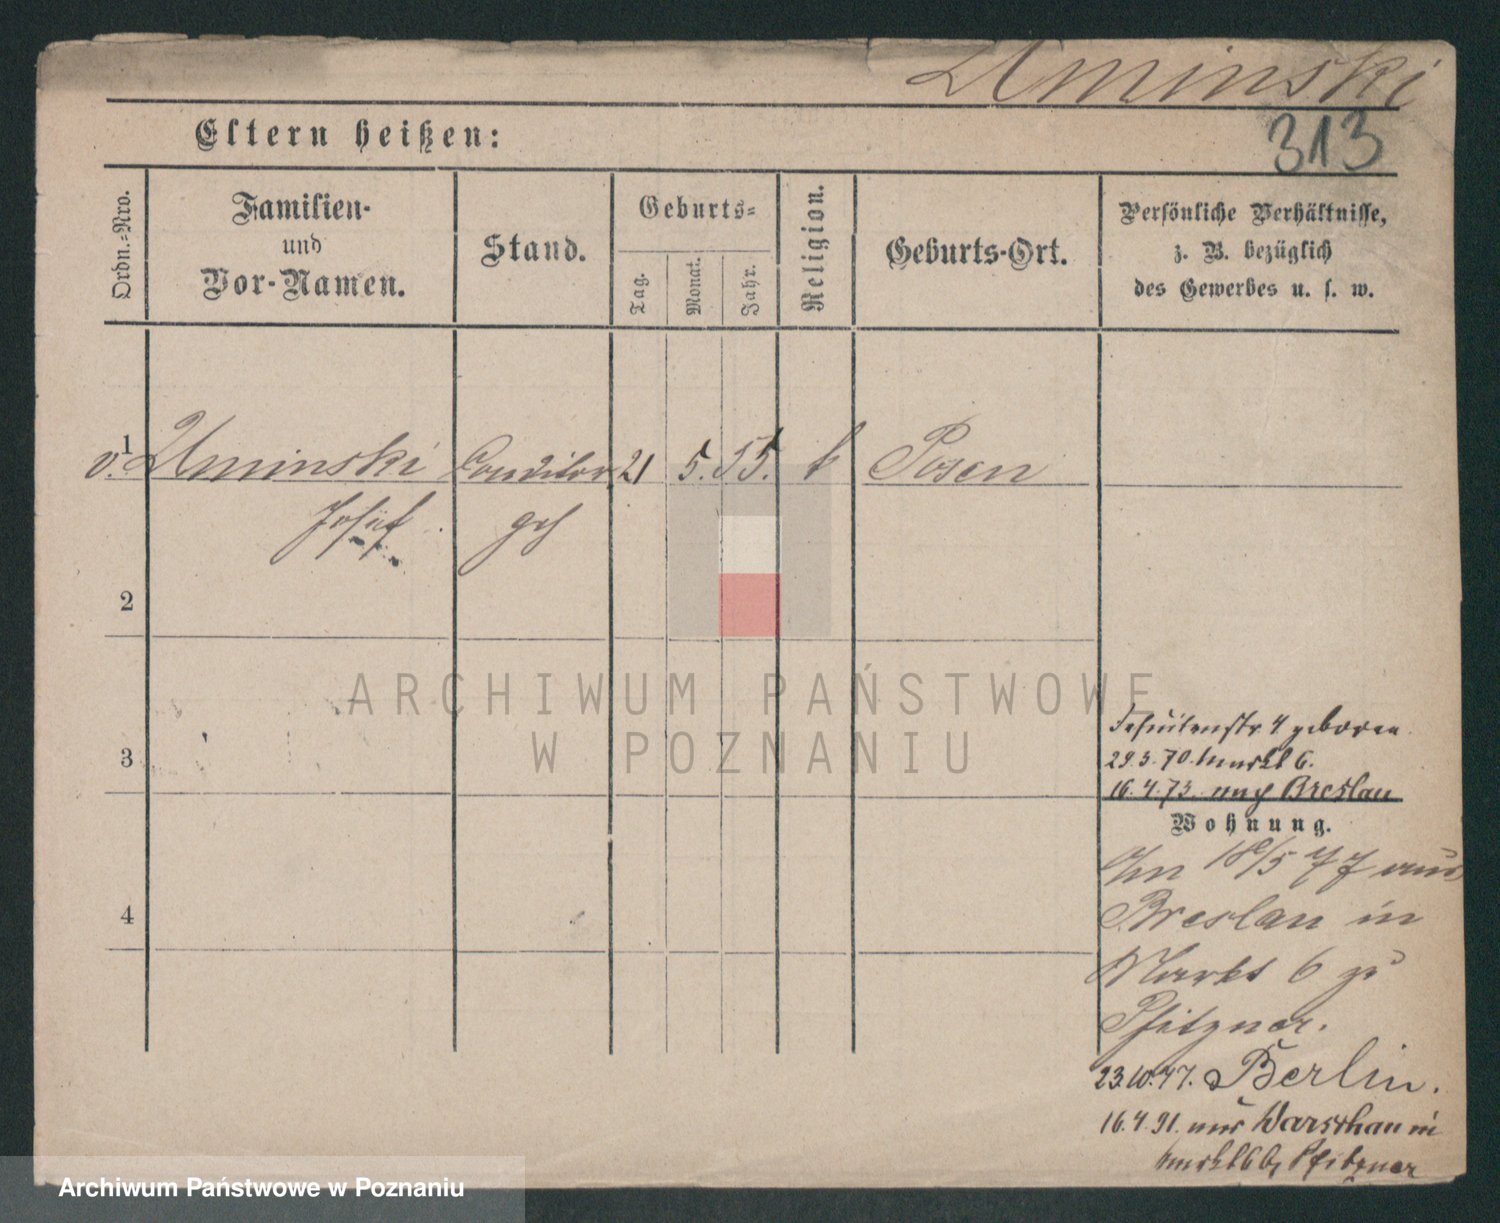 Uminski
313
Eltern heißen:
Ordn.-Nro.
Familien-
und
Vor-Namen.
Stand.
Geburts-
Tag.
Monat.
Jahr.
Religion.
Geburts-Ort.
Persönliche Verhältnisse,
z. B. bezüglich
des Gewerbes u. s. w.
1
v. Uminski Conditor 21 5. 55. k Posen
Josef geh
2
3
4
ARCHIWUM PAŃSTWOWE
W POZNANIU
Jesuitenstr 4 geboren
29.5.70. Markt 6.
16.4.73. nach Breslau
Wohnung.
Am 18/5 77 aus
Breslau in
Markt 6 zu
Pfitzner.
23.10.77. Berlin.
16.4.91. aus Warschau in
Markt 6 b/ Pfitzner
Archiwum Państwowe w Poznaniu